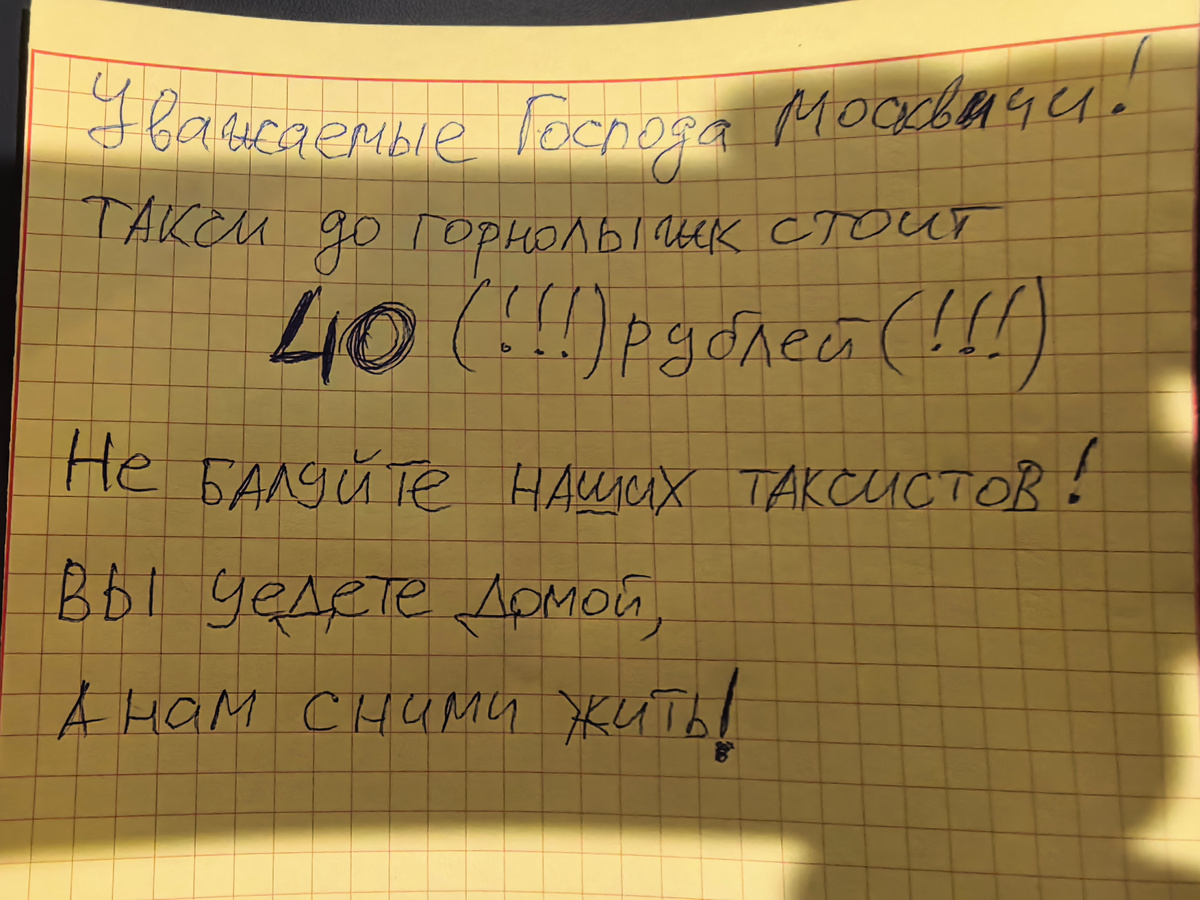 Уважаемые Господа Москвичи!
ТАКСИ до горнолыжк стоит
40 (!!!) рублей (!!!)
Не БАЛУЙТЕ НАШИХ ТАКСИСТОВ!
ВЫ уедете домой,
А нам с ними жить!